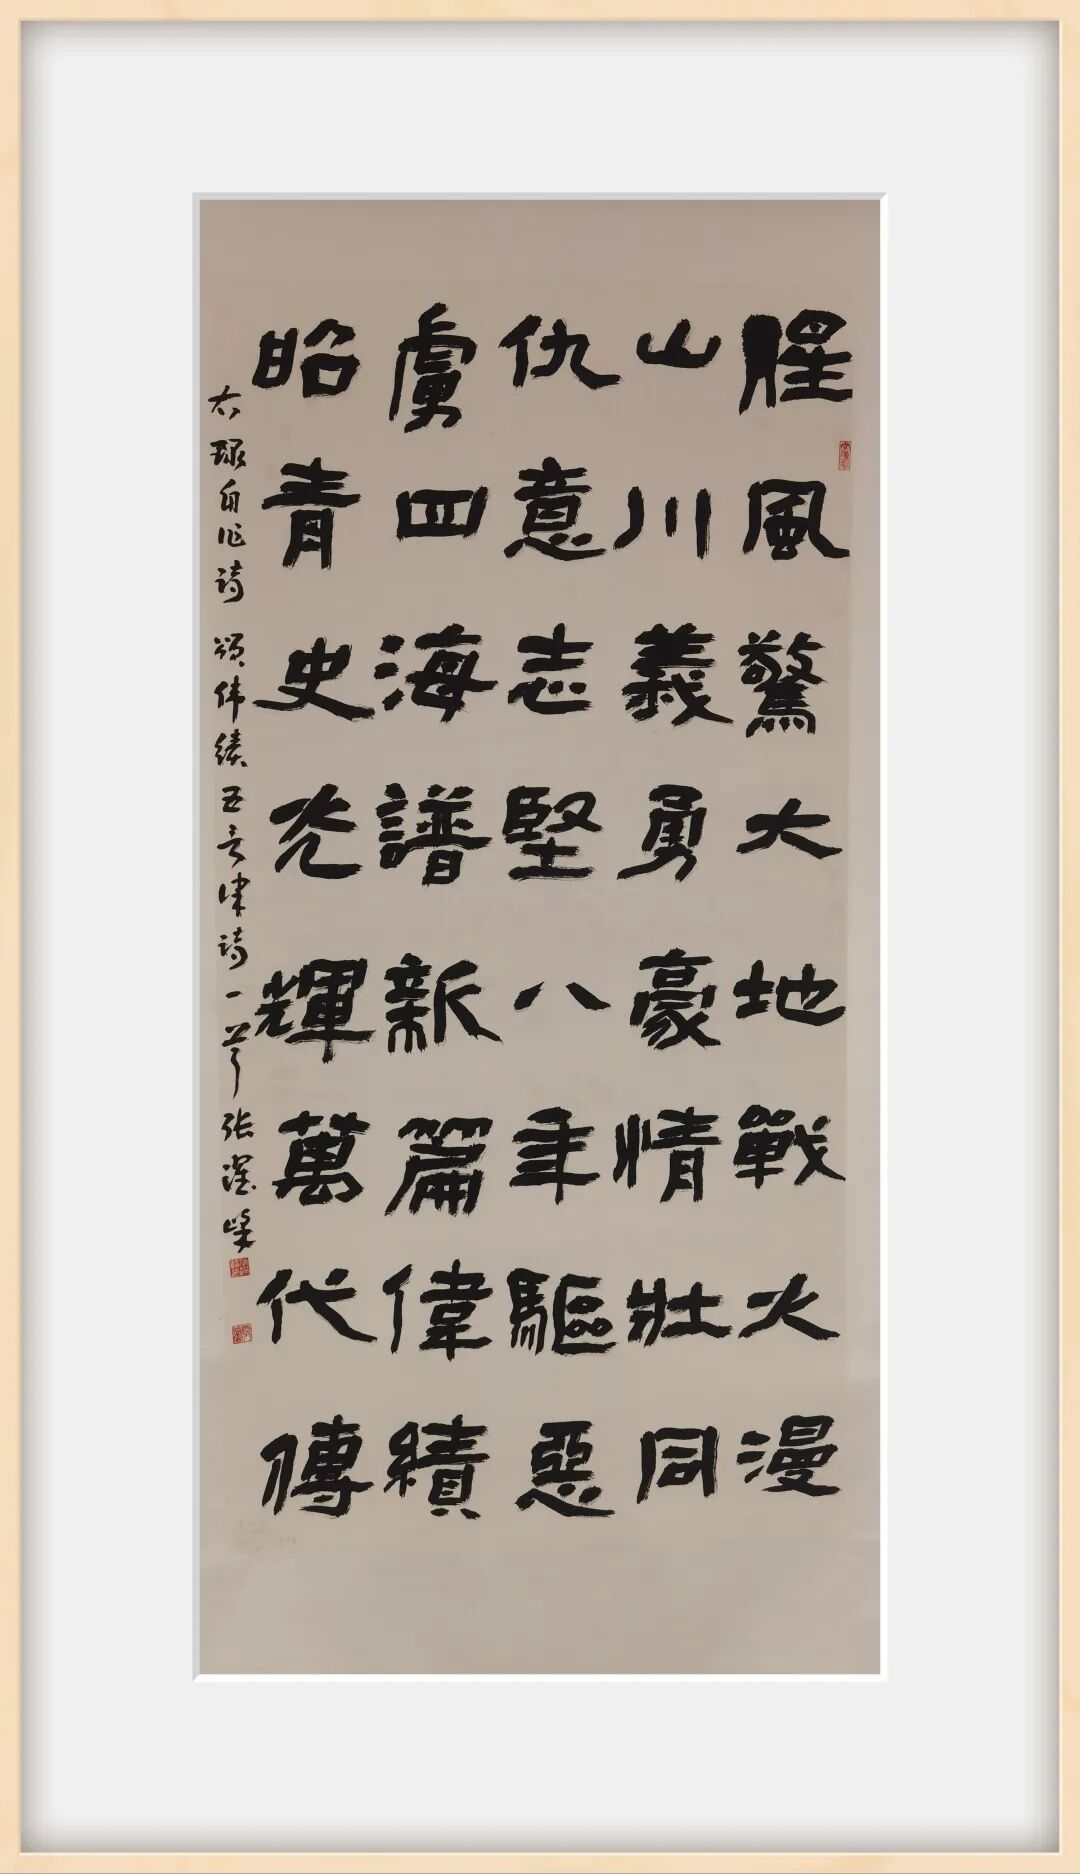 腥風驚大地戰火漫
山川義勇豪情壯同
仇意志堅八年驅惡
虜四海譜新篇偉績
昭青史光輝萬代傳
右録自作诗 頌伟績五言律诗一首 张